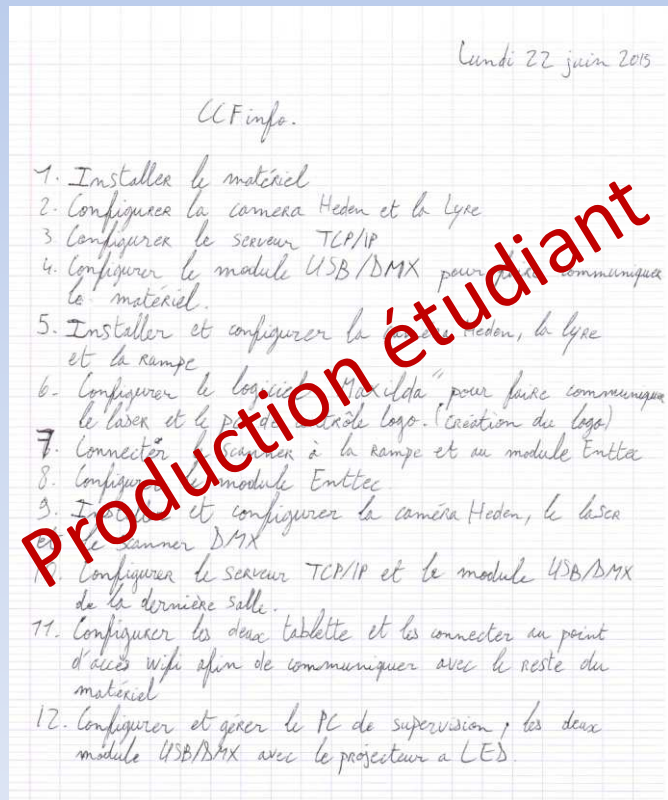 Lundi 22 juin 2015
CCF info.
1. Installer le matériel
2. Configurer la camera Heden et la Lyre
3. Configurer le serveur TCP/IP
4. Configurer le module USB/DMX pour faire communiquer
le matériel.
5. Installer et configurer la caméra Heden, la lyre
et la rampe
6. Configurer le logiciel "Maxilda" pour faire communiquer
le laser et le de contrôle logo. (création du logo)
7. Connecter le scanner à la rampe et au module Enttec
8. Configurer le module Enttec
9. Installer et configurer la caméra Heden, le laser
et le scanner DMX
10. Configurer le serveur TCP/IP et le module USB/DMX
de la dernière salle.
11. Configurer les deux tablette et les connecter au point
d'accès wifi afin de communiquer avec le reste du
matériel
12. Configurer et gérer le PC de supervision, les deux
module USB/DMX avec le projecteur a LED.
Production étudiant